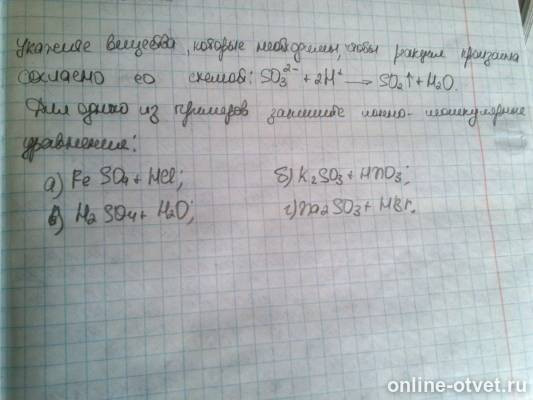 Укажите вещества, которые необходимы, чтобы реакция произошла
согласно со схемой: SO₃²⁻ + 2H⁺ → SO₂↑ + H₂O.
Для одного из примеров запишите ионно-молекулярные
уравнения:
а) FeSO₄ + HCl; б) K₂SO₃ + HNO₃;
в) H₂SO₄ + H₂O; г) Na₂SO₃ + HBr.
online-otvet.ru